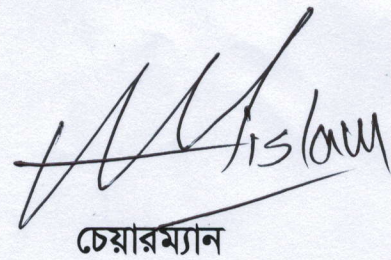 islam
চেয়ারম্যান